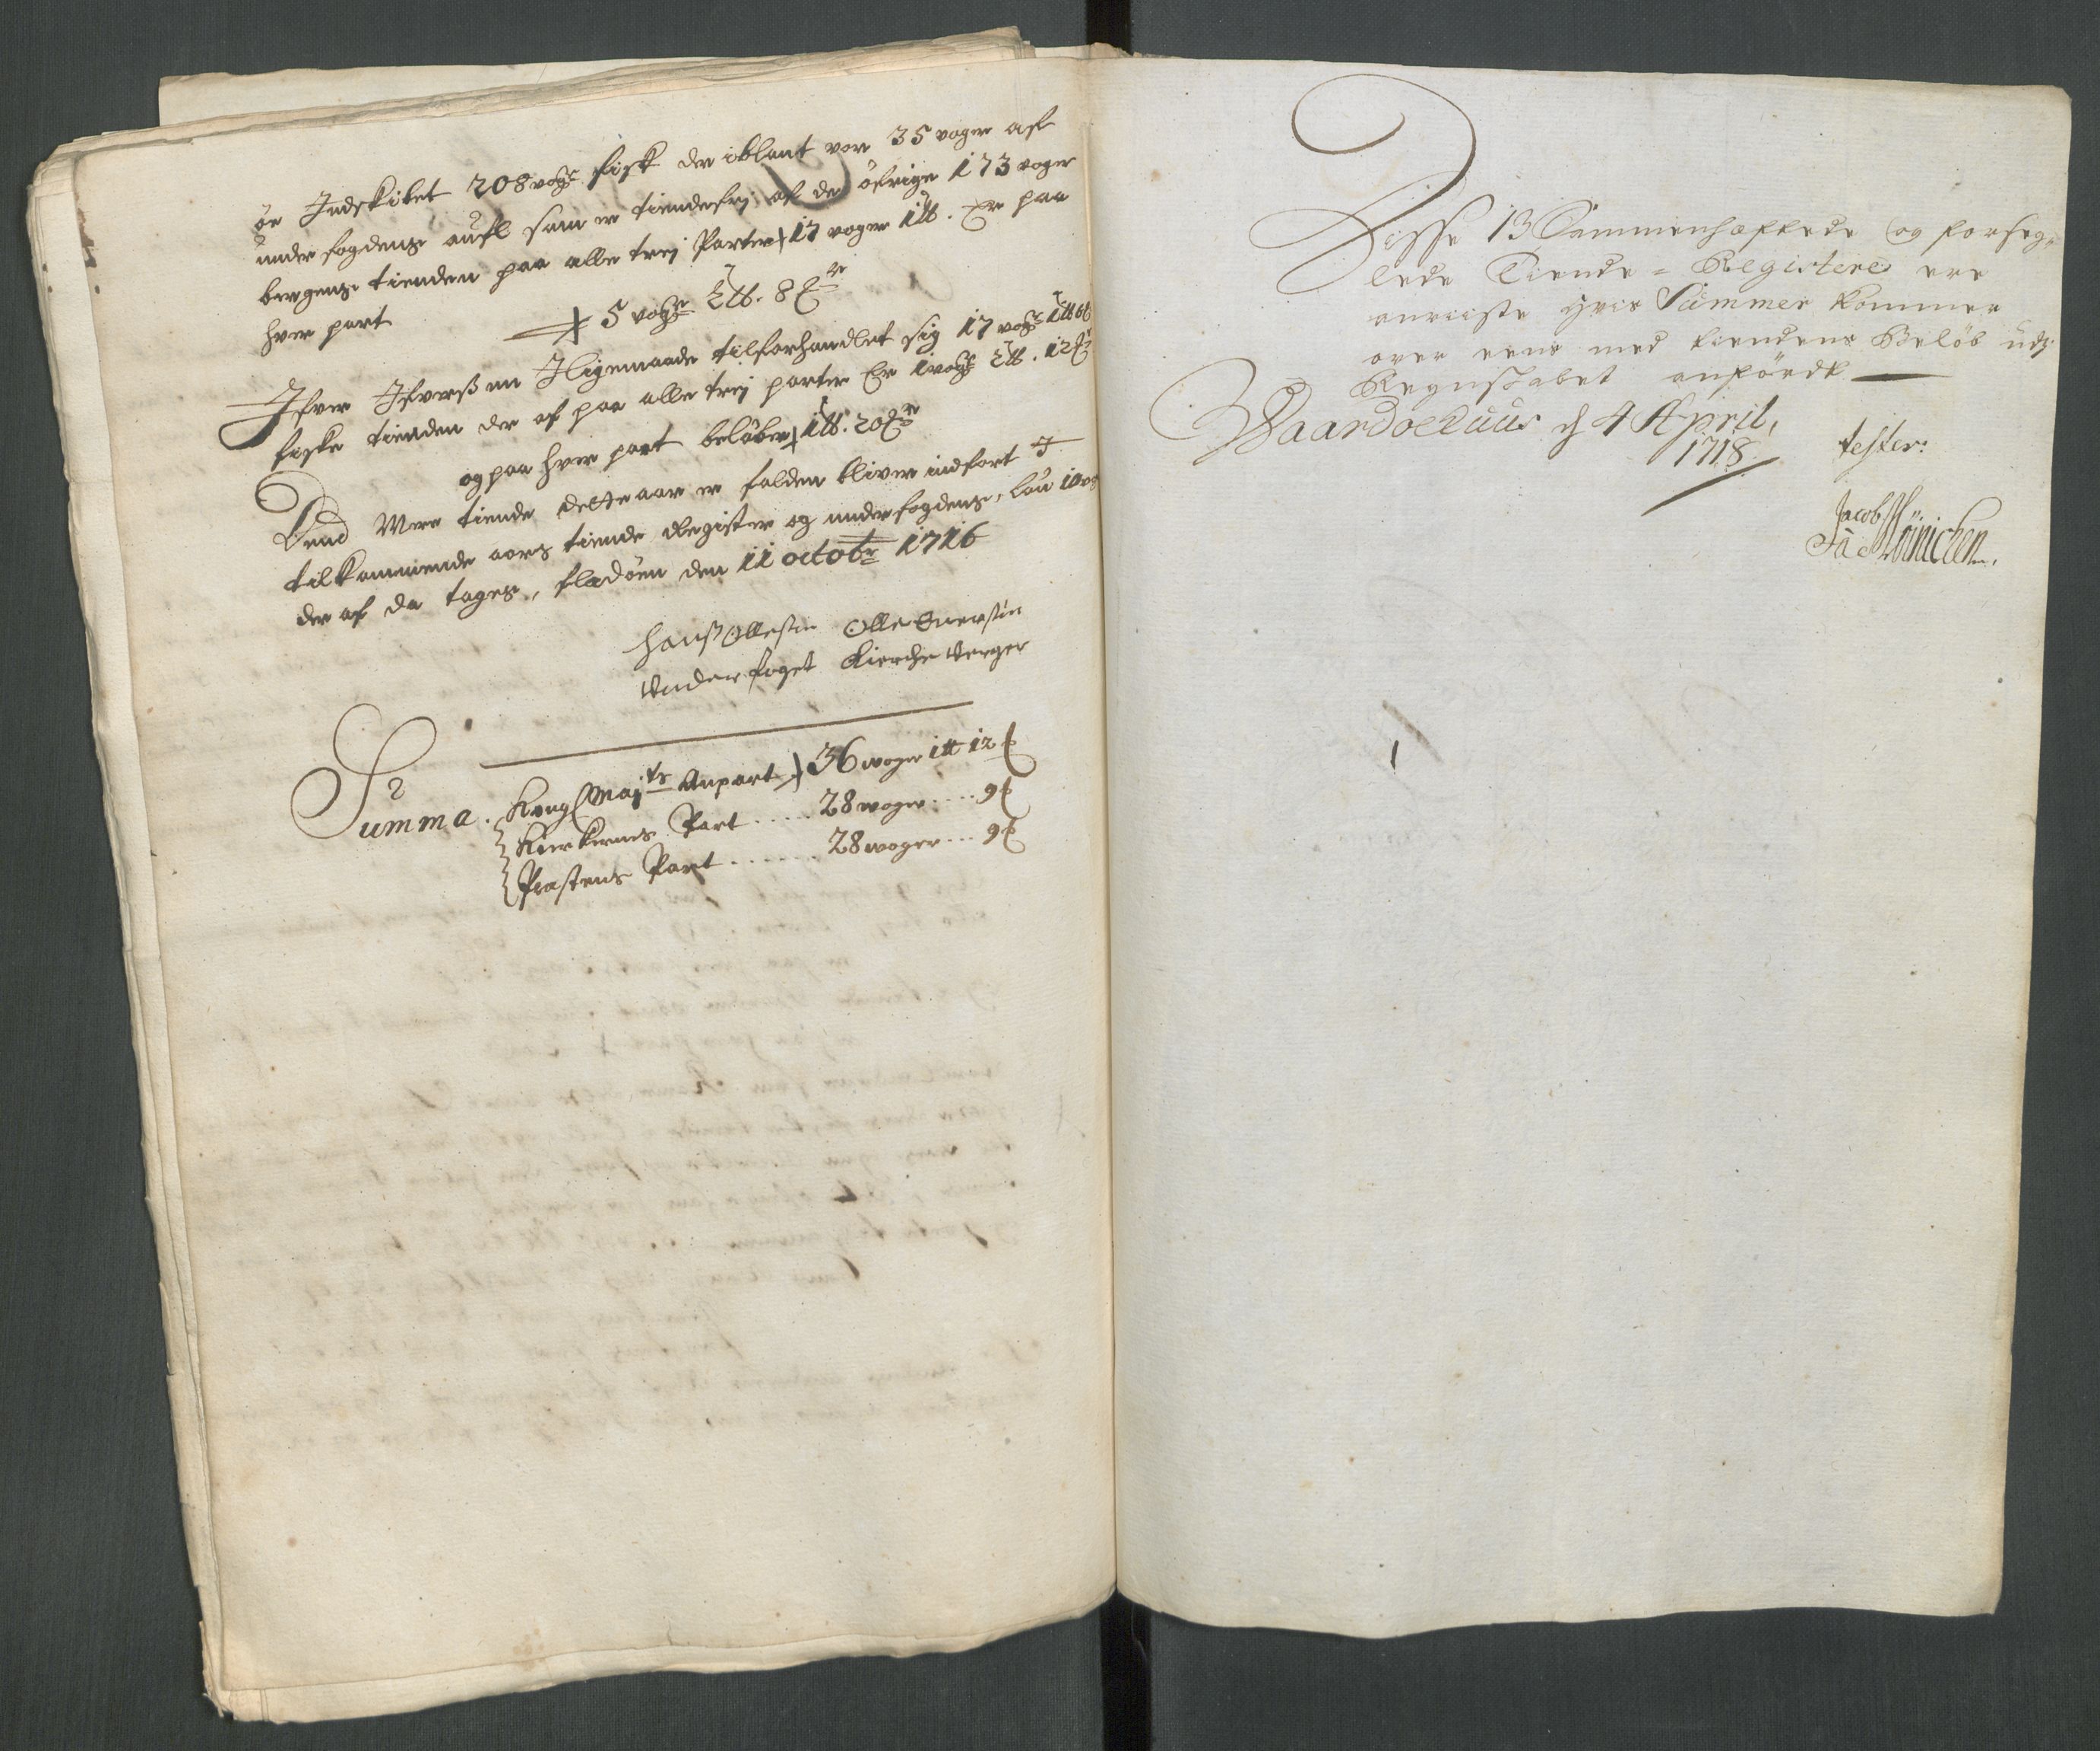 ör Indskibet 208 voger fisk der iblant var 35 voger af
underfogdens aufl som er tiendefrj af de öfrige 173 voger
bergens tienden paa alle trej Parter 17 voger 1 ℔. Er paa
hver part 5 voger 2 ℔. 8
Ifver Ifverßøn Iligemaade tilforhandlet sig 17 voger 1 ℔
fiske tienden der af paa alle trej parter Er 1 voger 2 ℔. 12
og paa hver part beløber 1 ℔. 20
Hvad Mere tiende dette aar er falden bliver indfort I
tilkommende aars tiende Register og underfogdens, løn
der af da tages, fladöen den 11 octobr 1716
Hanß Ollesøn Olle Iuersøn
Underfoget Kierche Verger
Summa. Kongl Mayts Anpart 36 woger 1 ℔ 12
Kierkernes Part ..... 28 woger .... 9
Præstens Part ....... 28 woger ... 9
Disse 13 Sammenhæftede og forseg-
lede Tiende-Registere ere
anviiste hvis Summer kommer
over eens med tiendens Beløb udj
Regnskabet anfördt
Waardoehuus d 4 April,
1718.
tester:
Jacob
Mönichen.